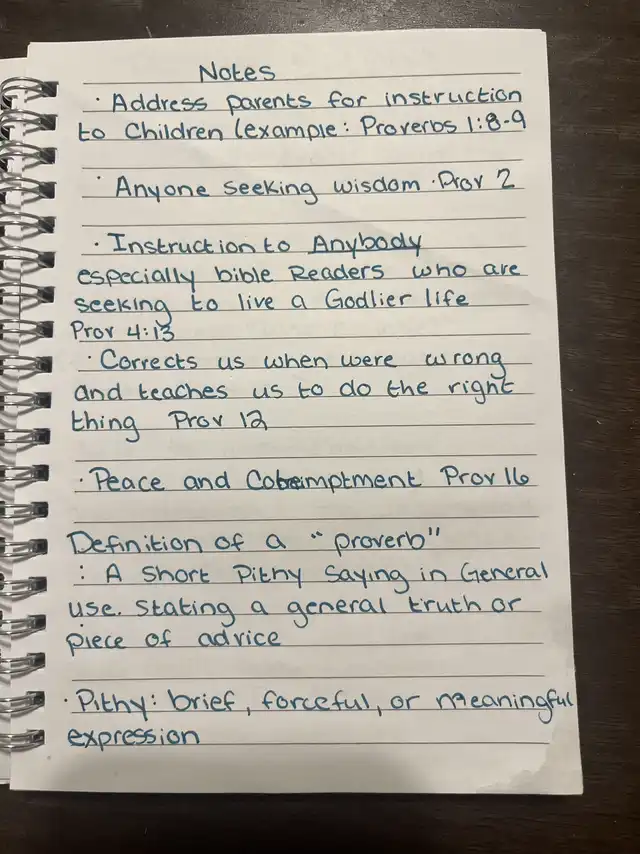 Notes
· Address parents for instruction
to Children (example: Proverbs 1:8-9
· Anyone seeking wisdom · Prov 2
· Instruction to Anybody
especially bible Readers who are
seeking to live a Godlier life
Prov 4:13
· Corrects us when were wrong
and teaches us to do the right
thing Prov 12
· Peace and Prov 16
Definition of a "proverb"
: A Short Pithy Saying in General
use. Stating a general truth or
piece of advice
· Pithy: brief, forceful, or meaningful
expression